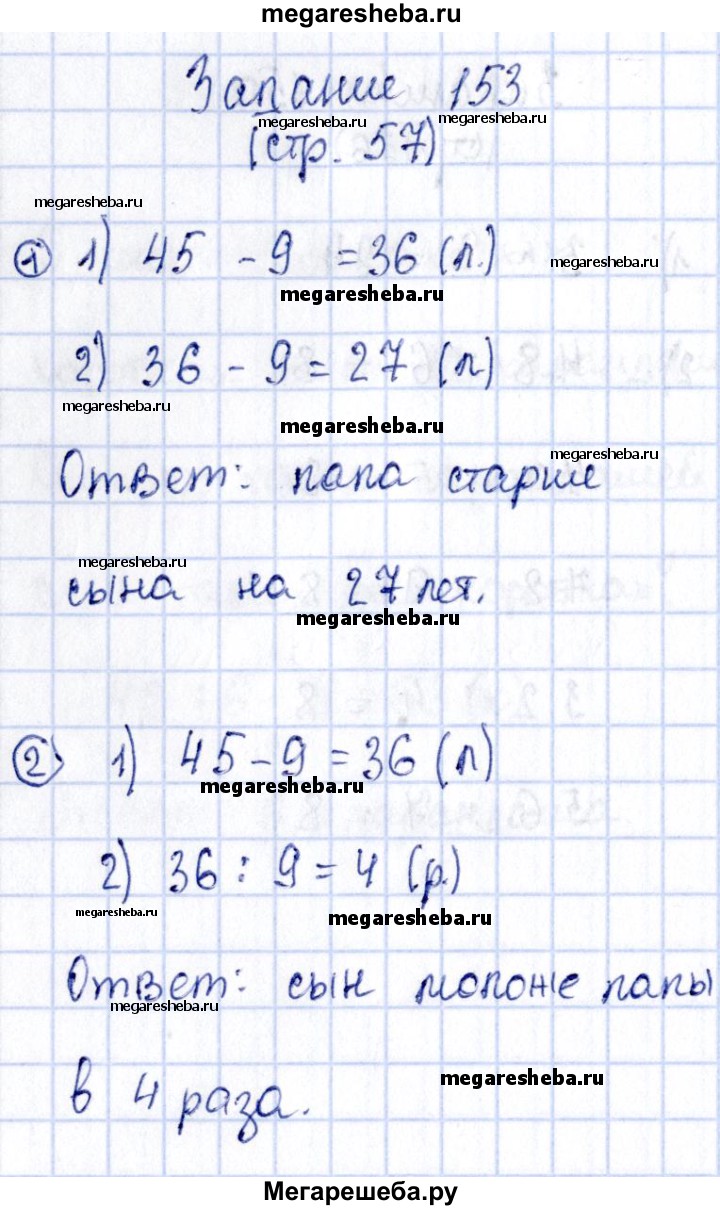 megaresheba.ru
Задание 153
megaresheba.ru
megaresheba.ru
(стр. 57)
megaresheba.ru
1 1) 45 - 9 = 36 (л.)
megaresheba.ru
megaresheba.ru
2) 36 - 9 = 27 (л)
megaresheba.ru
megaresheba.ru
megaresheba.ru
Ответ: папа старше
megaresheba.ru
сына на 27 лет.
megaresheba.ru
2 1) 45 - 9 = 36 (л)
megaresheba.ru
2) 36 : 9 = 4 (р.)
megaresheba.ru
megaresheba.ru
Ответ: сын моложе папы
megaresheba.ru
megaresheba.ru
в 4 раза.
Мегарешеба.ру